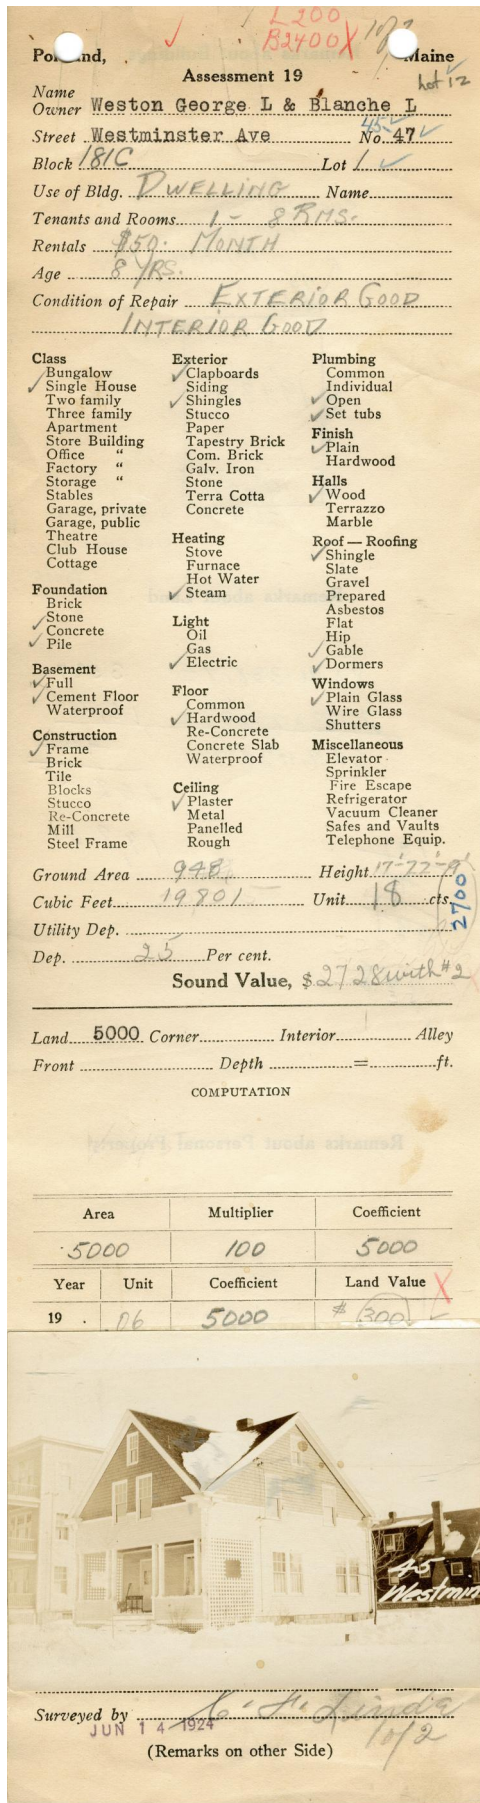 L 200
B2400 X 1 of 2
Portland, Maine
Assessment 19
Lot 12
Name
Owner Weston George L & Blanche L
45
Street Westminster Ave No. 47
Block 181C Lot 1
Use of Bldg. DWELLING Name
Tenants and Rooms 1 - 8 RMS.
Rentals $50. MONTH
Age 8 YRS.
Condition of Repair EXTERIOR GOOD
INTERIOR GOOD
Class
Bungalow
Single House
Two family
Three family
Apartment
Store Building
Office "
Factory "
Storage "
Stables
Garage, private
Garage, public
Theatre
Club House
Cottage
Foundation
Brick
Stone
Concrete
Pile
Basement
Full
Cement Floor
Waterproof
Construction
Frame
Brick
Tile
Blocks
Stucco
Re-Concrete
Mill
Steel Frame
Exterior
Clapboards
Siding
Shingles
Stucco
Paper
Tapestry Brick
Com. Brick
Galv. Iron
Stone
Terra Cotta
Concrete
Heating
Stove
Furnace
Hot Water
Steam
Light
Oil
Gas
Electric
Floor
Common
Hardwood
Re-Concrete
Concrete Slab
Waterproof
Ceiling
Plaster
Metal
Panelled
Rough
Plumbing
Common
Individual
Open
Set tubs
Finish
Plain
Hardwood
Halls
Wood
Terrazzo
Marble
Roof — Roofing
Shingle
Slate
Gravel
Prepared
Asbestos
Flat
Hip
Gable
Dormers
Windows
Plain Glass
Wire Glass
Shutters
Miscellaneous
Elevator
Sprinkler
Fire Escape
Refrigerator
Vacuum Cleaner
Safes and Vaults
Telephone Equip.
Ground Area 948 Height 17'-22'-9'
Cubic Feet 19801 Unit 18 cts.
2700
Utility Dep.
Dep. 25 Per cent.
Sound Value, $ 2728 with #2
Land 5000 Corner Interior Alley
Front Depth = ft.
COMPUTATION
Area Multiplier Coefficient
5000 100 5000
Year Unit Coefficient Land Value X
19 06 5000 $ 300
45
Westmin
Surveyed by
JUN 14 1924
1 of 2
(Remarks on other Side)